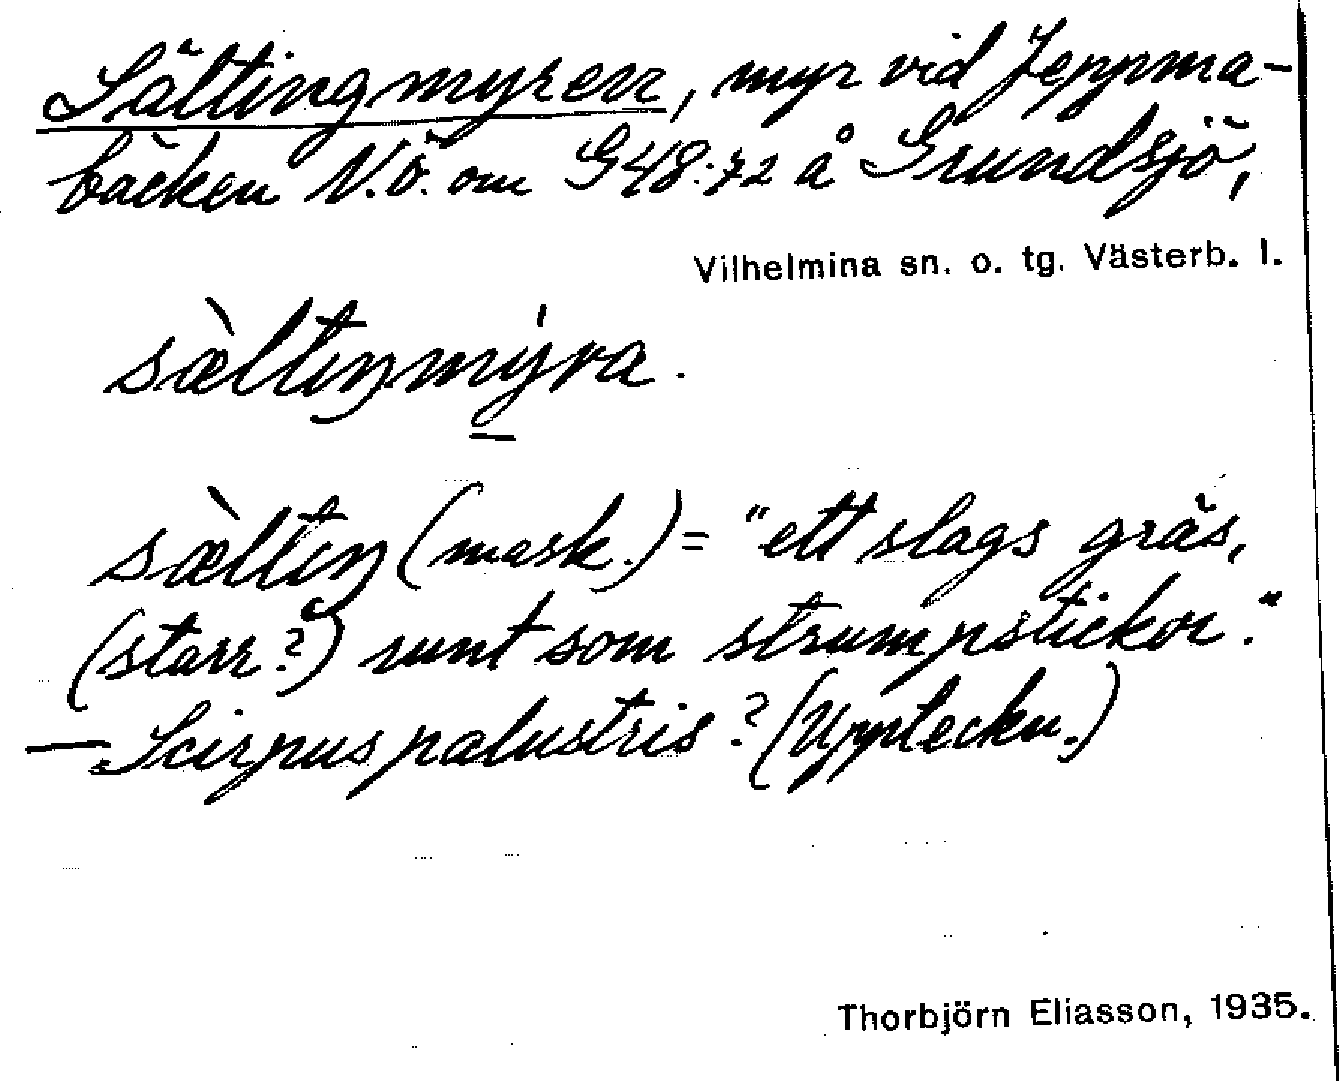 Sältingmyren, myr vid Jeppma-
bäcken N.Ö. om G48:72 å Grundsjö,
Vilhelmina sn. o. tg. Västerb. l.
sæ̀ltiŋmýra.
sæ̀ltiŋ (mask.) = "ett slags gräs,
(starr?) runt som strumpstickor."
— Scirpus palustris? (Uppteckn.)
Thorbjörn Eliasson, 1935.